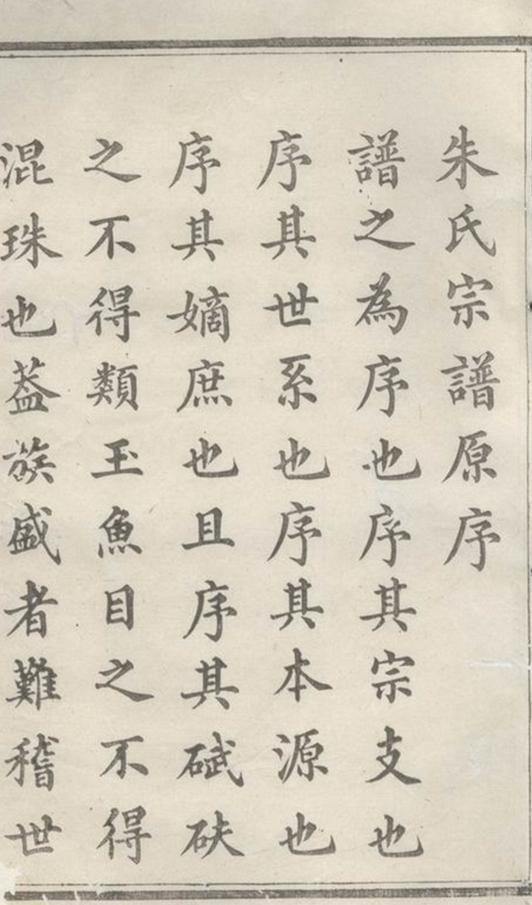 朱氏宗譜原序
譜之為序也序其宗支也
序其世系也序其本源也
序其嫡庶也且序其碔砆
之不得類玉魚目之不得
混珠也葢族盛者難稽世